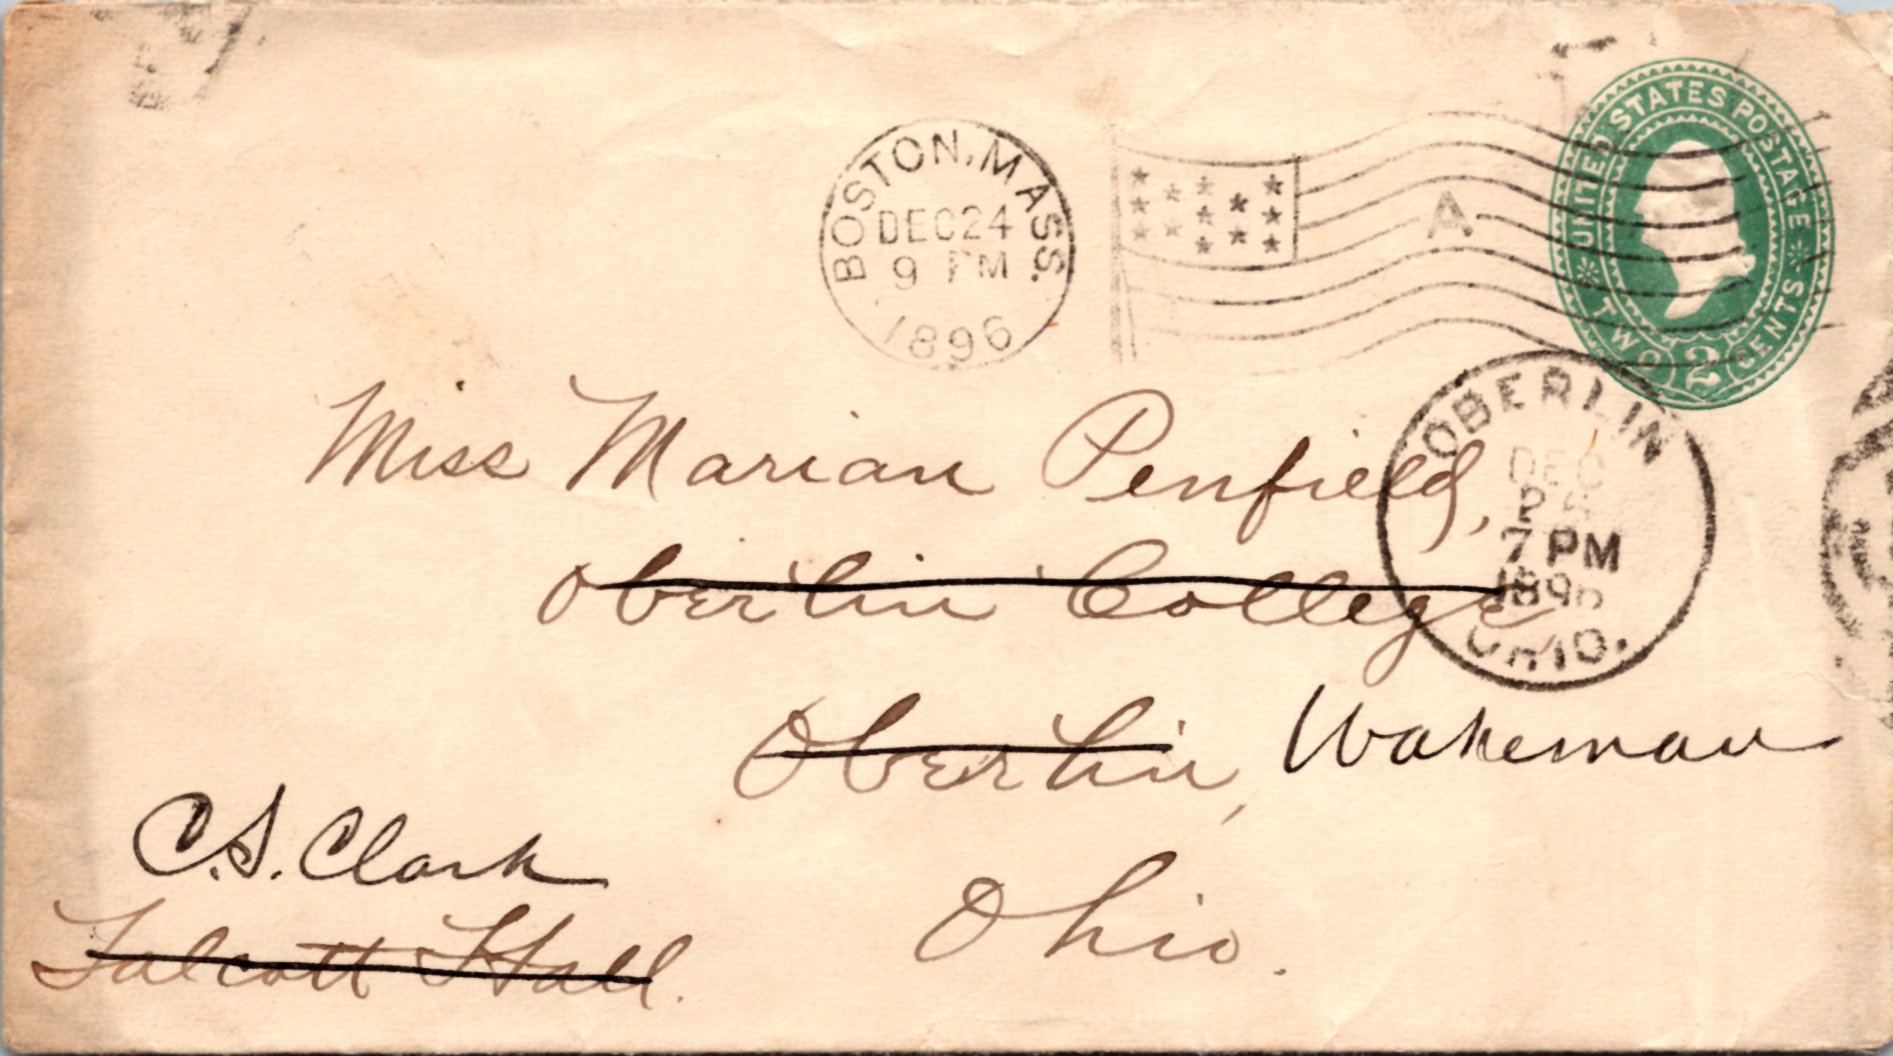 BOSTON, MASS.
DEC 24
9 PM
1896
A
UNITED STATES POSTAGE
TWO 2 CENTS
OBERLIN
DEC
7 PM
1896
OHIO.
Miss Marian Penfield,
Oberlin College
Oberlin, Wakeman
Ohio.
C.S. Clark
Talcott Hall.